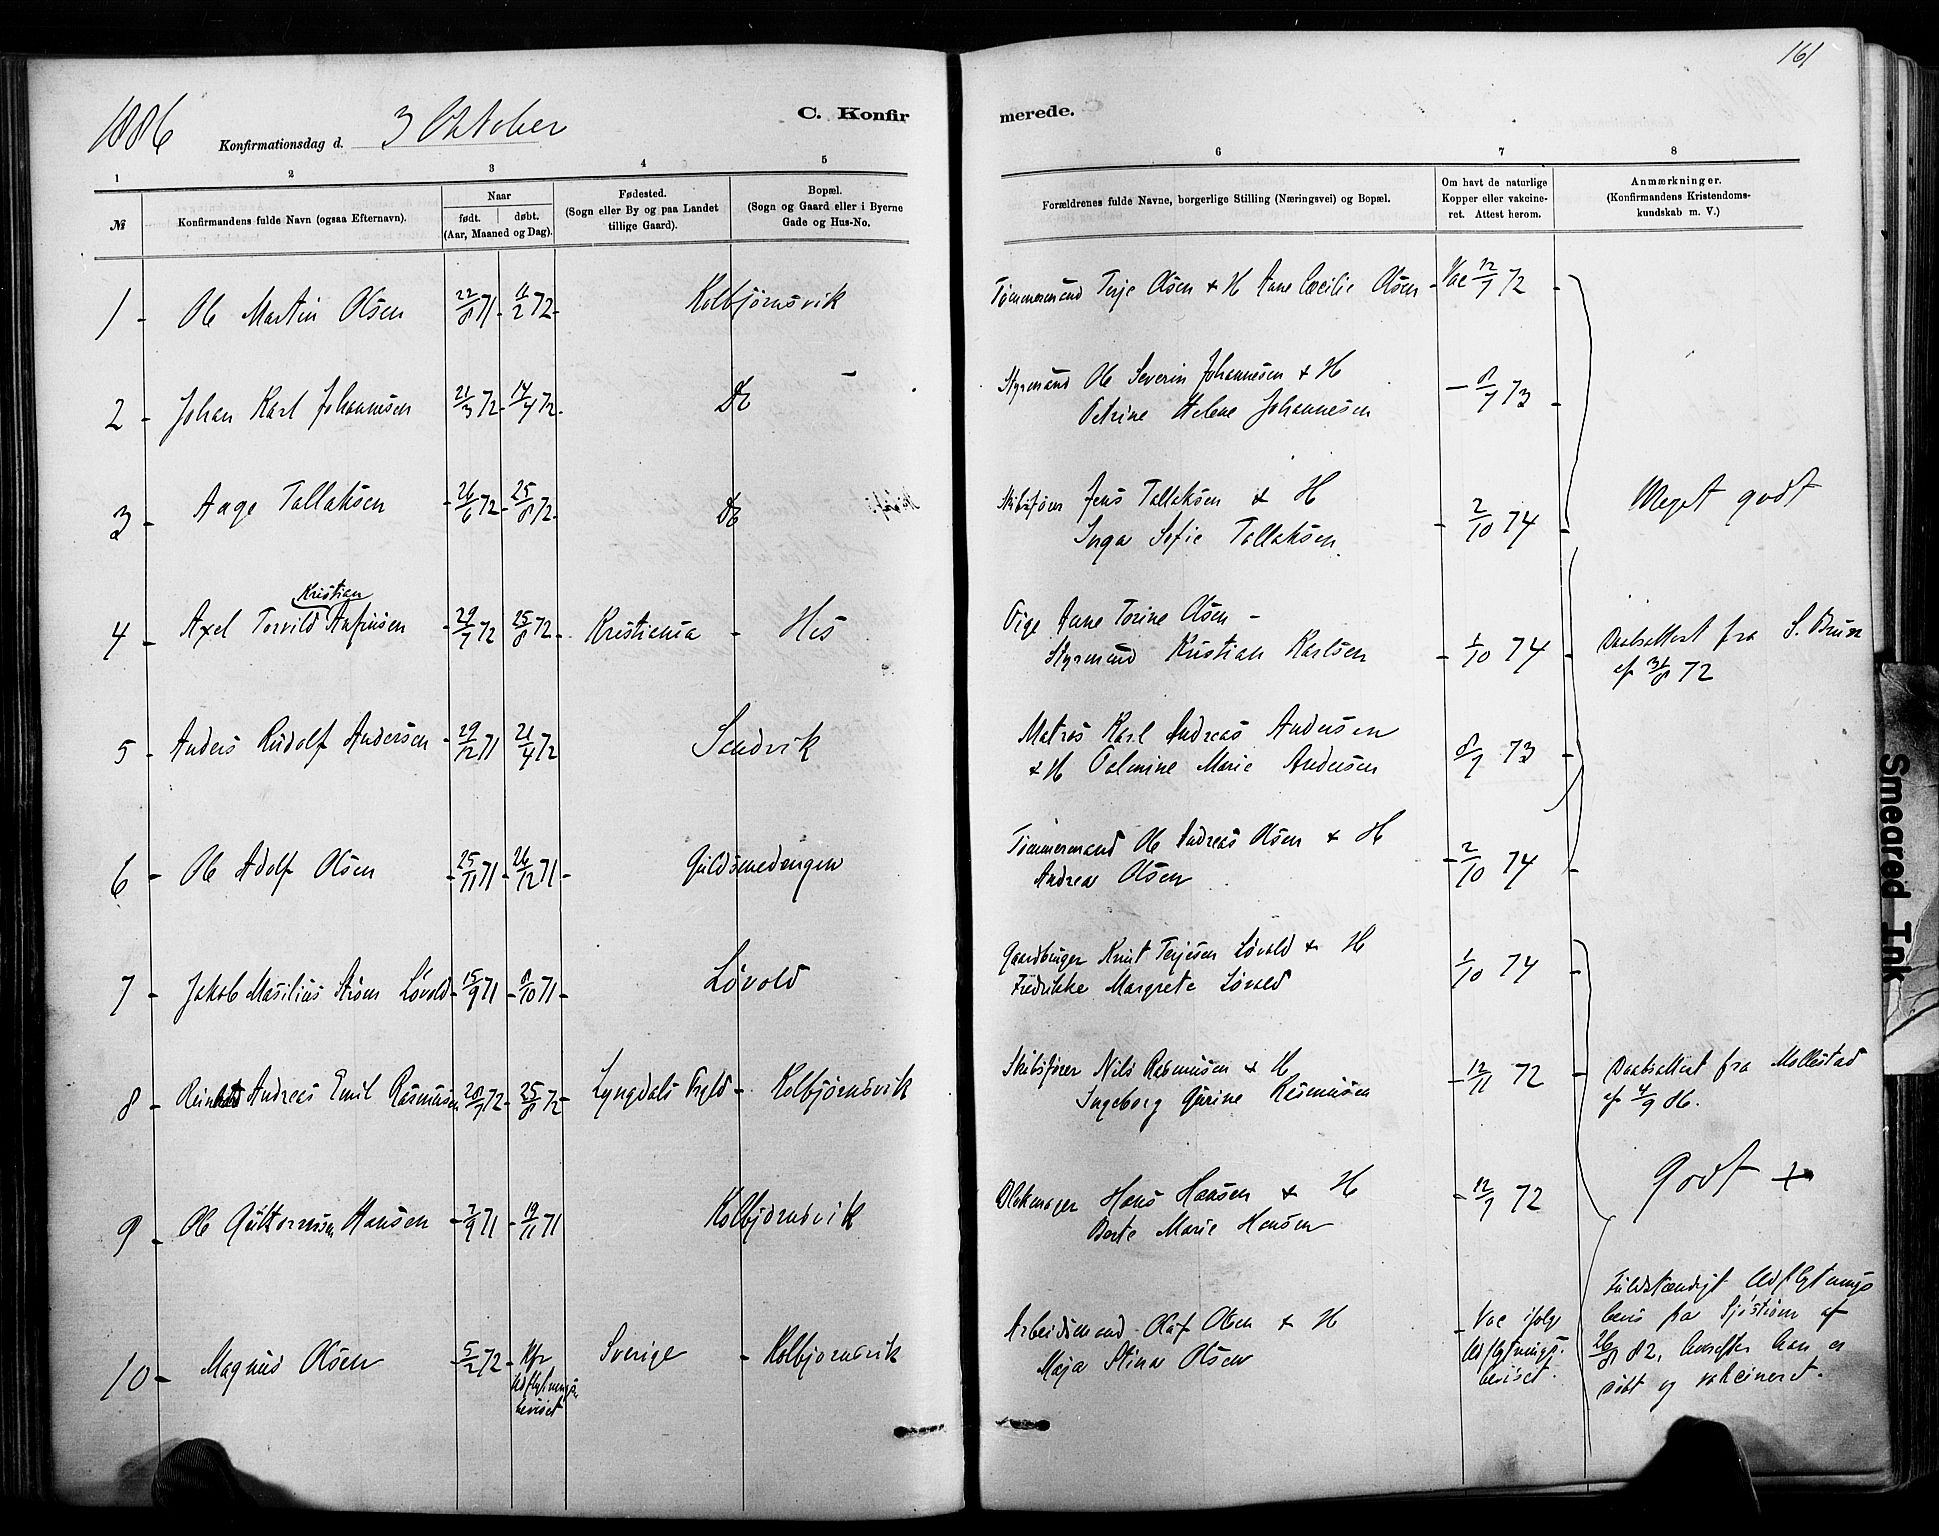 161
1886 Konfirmationsdag d. 3 Oktober C. Konfir merede.
1 2 3 4 5 6 7 8
№ Konfirmandens fulde Navn (ogsaa Efternavn). Naar født. døbt. (Aar, Maaned og Dag). Fødested. (Sogn eller By og paa Landet tillige Gaard). Bopæl. (Sogn og Gaard eller i Byerne Gade og Hus-No. Forældrenes fulde Navne, borgerlige Stilling (Næringsvei) og Bopæl. Om havt de naturlige Kopper eller vakcineret. Attest herom. Anmærkninger. (Konfirmandens Kristendomskundskab m. V.)
1 - Ole Martin Olsen 22/8 71 - 11/2 72 - Kolbjørnsvik Tømmermand Terje Olsen & H Anne Cæcilie Olsen - Vac 12/7 72 -
2 - Johan Karl Johannesen 21/3 72 - 14/4 72 - Do - Styrmand Ole Severin Johannesen & H - 8/7 73 -
Petrine Helene Johannesen
3 - Aage Tallaksen - 26/6 72 - 25/8 72 - Do Skibsfører Jens Tallaksen & H - 2/10 74 - Meget godt
Inga Sofie Tallaksen
4 - Axel Torvild Kristian Anfinsen - 29/7 72 - 25/8 72 - Kristiania - His Pige Anne Torine Olsen -
Styrmand Kristian Karlsen - 1/10 74 - Daabsattest fra S. Bruun
af 31/8 72
5 - Anders Rudolf Andersen - 29/12 71 - 21/4 72 Sandvik Matros Karl Andreas Andersen 8/7 73 -
& H Palmine Marie Andersen
6 - Ole Adolf Olsen - 25/11 71 - 26/12 71 - Guldsmedengen Tømmermand Ole Andreas Olsen & H - 2/10 74 -
Andrea Olsen
7 - Jakob Masilius Strøm Løvold - 15/9 71 - 8/10 71 - Løvold Gaardbruger Knut Terjesen Løvold & H 1/10 74 -
Fredrikke Margrete Løvold
8 - Reinhold Andreas Emil Rasmusen 20/7 72 - 25/8 72 - Lyngdals Prgld - Kolbjørnsvik Skibsfører Nils Rasmusen & H - 12/11 72 - Daabsattest fra Mollestad
Ingeborg Gurine Rasmusen af 4/9 86.
Godt +
9 - Ole Guttormsen Hansen - 7/9 71 - 19/11 71 Kolbjørnsvik Blokmager Hans Hansen & H - 12/7 72
Berte Marie Hansen
10 - Magnus Olsen - 5/2 72 - Kfr Udflytningsbeviset Sverige - Kolbjørnsvik Arbeidsmand Olaf Olsen & H - Vac ifølge Udflytningsbeviset.
Maja Stina Olsen
Fuldstændigt Udflytnings
bevis fra Sjöström af
26/8 82, hvorefter han er
døbt og vakcineret.
Smeared Ink